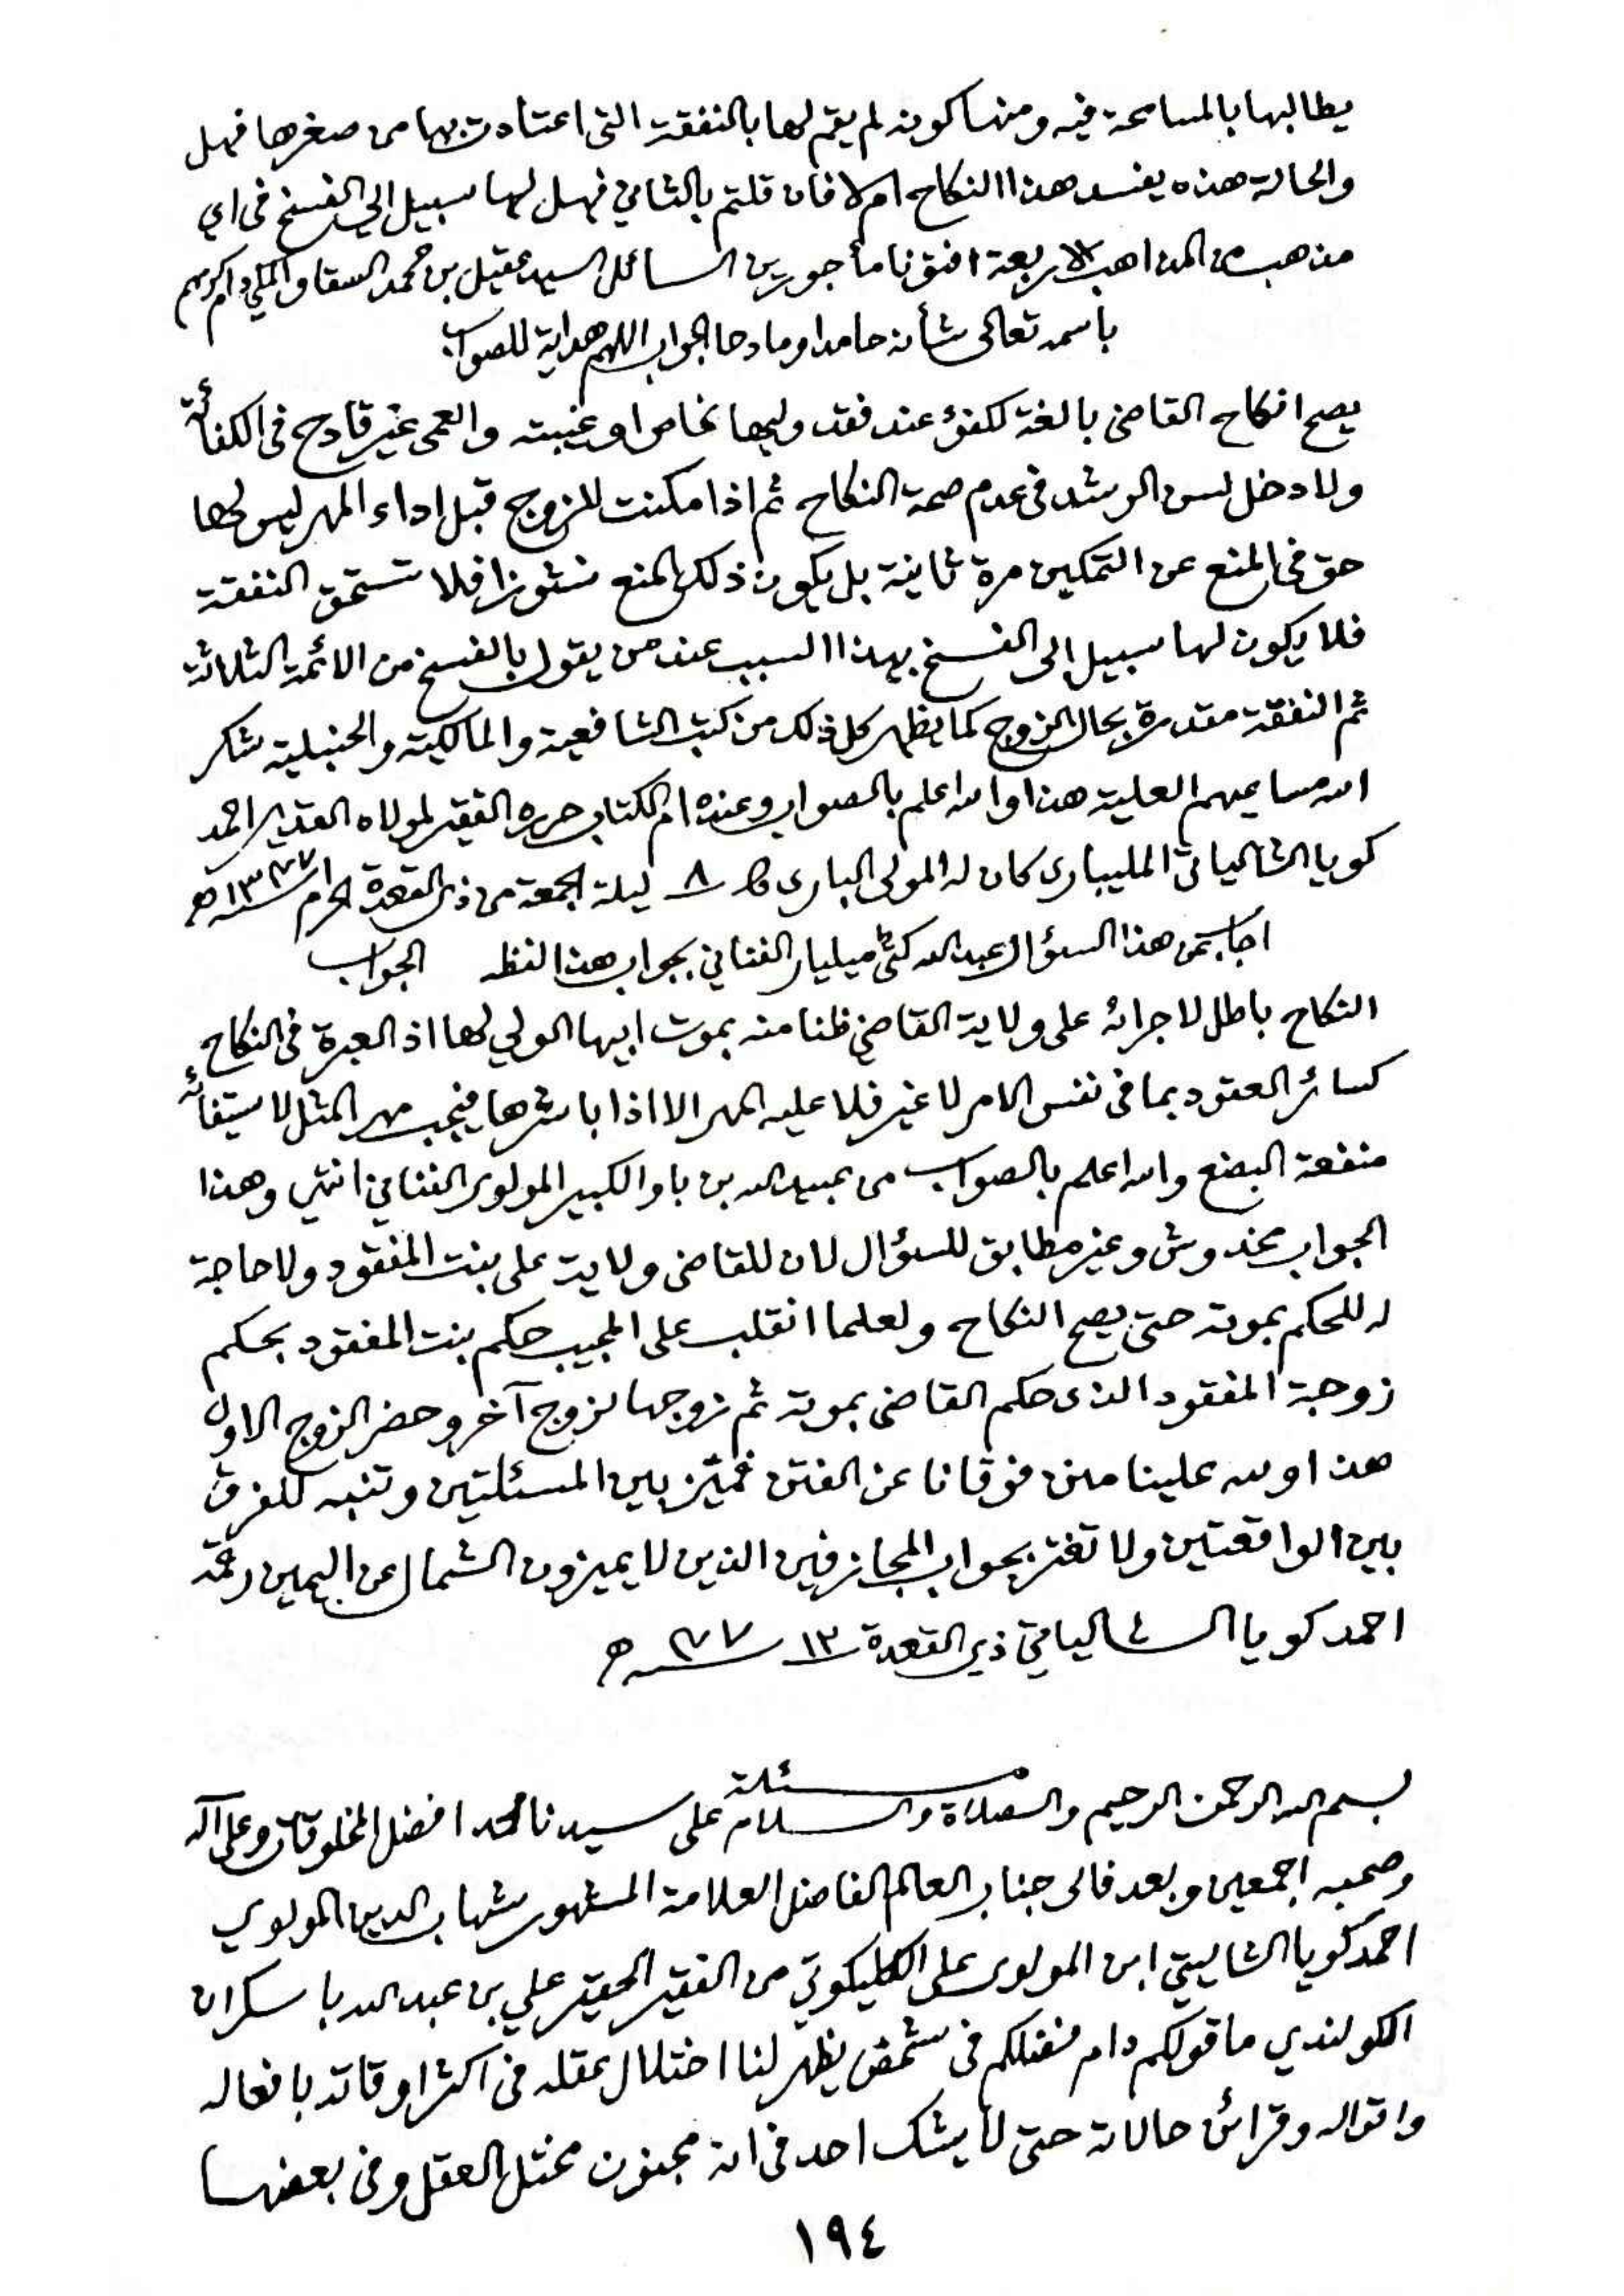 يطالبها بالمسامحة فيه ومنها كونه لم يقم لها بالنفقة التى اعتادت بها من صغرها فهل
والحالة هذه يفسد هذا النكاح ام لا فان قلتم بالثاني فهل لها سبيل الى الفسخ فى اي
مذهب من المذاهب الاربعة افتونا مأجورين السائل السيد عقيل بن محمد السقاف المكي
باسمه تعالى شأنه حامدا ومادحا الجواب اللهم هداية للصواب
يصح انكاح القاضى بالغة لكفؤ عند فقد وليها الخاص او غيبته والعمى غير قادح فى الكفائة
ولا دخل لسن الرشد فى عدم صحة النكاح ثم اذا مكنت للزوج قبل اداء المهر ليس لها
حق فى المنع عن التمكين مرة ثانية بل يكون ذلك المنع نشوزا فلا تستحق النفقة
فلا يكون لها سبيل الى الفسخ بهذا السبب عند من يقول بالفسخ من الائمة الثلاثة
ثم النفقة مقدرة بحال الزوج كما يظهر كل ذلك من كتب الشافعية والمالكية والحنبلية شكر
الله مساعيهم العلية هذا والله اعلم بالصواب وعنده ام الكتاب حرره الفقير لمولاه القدير احمد
كويا الشالياتى المليبارى كان له المولى البارى ٨ ليلة الجمعة من ذى القعدة الحرام ١٣٧٧ هـ
اجاب عن هذا السؤال عبد الله كتى ميليار الفنانى بجواب هذا لفظه الجواب
النكاح باطل لاجرائه على ولاية القاضى ظنا منه بموت ابيها الولي لها اذ العبرة فى النكاح
كسائر العقود بما فى نفس الامر لا غير فلا عليه المهر الا اذا باشرها فيجب مهر المثل لاستيفائه
منفعة البضع والله اعلم بالصواب من عبيد الله بن باوا الكبير المولوى الفنانى انتهى وهذا
الجواب مخدوش وغير مطابق للسؤال لان للقاضى ولاية على بنت المفقود ولا حاجة
له للحكم بموته حتى يصح النكاح ولعلما انقلب على المجيب حكم بنت المفقود بحكم
زوجة المفقود الذى حكم القاضى بموته ثم زوجها لزوج آخر وحضر الزوج الاول
هذا ولله علينا منن فوقانا عن الفتن فميّز بين المسئلتين وتنبه للفرق
بين الواقعتين ولا تغتر بجواب المجازفين الذين لا يميزون الشمال عن اليمين رقمه
احمد كويا الشالياتي ذى القعدة ١٣٧٧ هـ
مسئلة
بسم الله الرحمن الرحيم والصلاة والسلام على سيدنا محمد افضل المخلوقات وعلى آله
وصحبه اجمعين وبعد فالى جناب العالم الفاضل العلامة المشهور شهاب الدين المولوي
احمد كويا الشاليتي ابن المولوى على الكليكوتي من الفقير الحقير علي بن عبد الله باسكران
الكولندي ما قولكم دام فضلكم فى شخص يظهر لنا اختلال عقله فى اكثر اوقاته بافعاله
واقواله وقرائن حالاته حتى لا يشك احد فى انه مجنون مختل العقل وفى بعضها
١٩٤